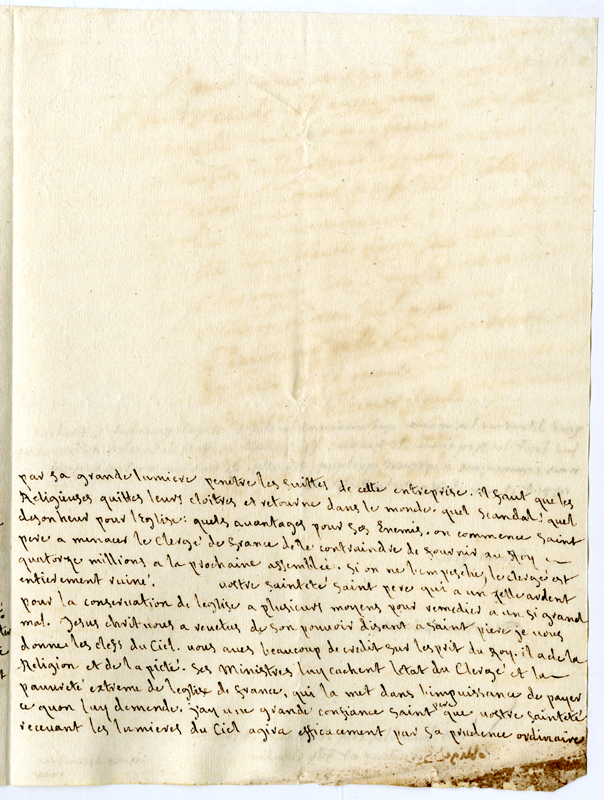 par sa grande lumiere penetre les suittes de cette entreprise. il faut que les
Religieuses quittes leurs cloîtres et retourne dans le monde. quel scandal! quel
desonheur pour l'Eglise: quels auantages pour ses Enemis. on commence Saint
pere a menacer le Clergé de France de le contraindre de fournir au Roy
quatorze millions a la prochaine assemblée. si on ne l'empesche, le clergé est
entierement ruiné. vostre sainteté Saint pere qui a un zelle ardent
pour la conseruation de leglise a plusieurs moyens pour remedier a un si grand
mal. Jesus chrit uous a reuetus de son pouuoir disant a saint pierre je uous
donne les clefs du Ciel. uous aues beaucoup de credit sur lesprit du Roy. il a de la
Religion et de la pieté. ses Ministres luy cachent l'état du Clergé et la
pauureté extreme de leglise de France, qui la met dans l'impuissance de payer
ce quon luy demende. j'ay une grande confiance Saint pere que vostre sainteté
receuant les lumieres du Ciel agira efficacement par sa prudence ordinaire